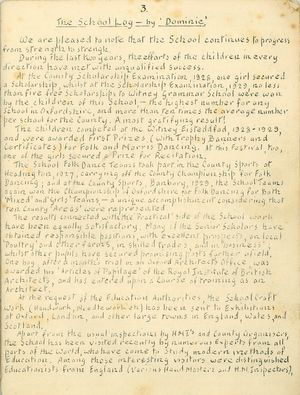 3.
The School Log – by 'Dominie'
We are pleased to note that the School continues to progress
from strength to strength.
During the last two years, the efforts of the children in every
direction have met with unqualified success.
At the County Scholarship Examination, 1928, one girl secured
a Scholarship, whilst at the Scholarship Examination, 1929, no less
than five free Scholarships to Witney Grammar School were won
by the children of this School – the highest number for any
school in Oxfordshire, and more than ten times the average number
per school for the County. A most gratifying result!
The children competed at the Witney Eisteddfod, 1928 - 1929,
and were awarded First Prizes (with Trophy Banners and
Certificates) for Folk and Morris Dancing. At this Festival, too,
one of the girls secured a Prize for Recitation.
The School Folk Dance Teams took part in the County Sports at
Headington, 1927, carrying off the County Championship for Folk
Dancing; and at the County Sports, Banbury, 1929, the School Teams
again won the Championship of Oxfordshire for Folk Dancing for Both
'Mixed' and 'Girls' Teams – a unique accomplishment considering that
ten County Areas were represented.
The results connected with the 'Practical' side of the School work
have been equally satisfactory. Many of the Senior Scholars have
obtained responsible positions, with excellent prospects, on local
'Poultry' and other Farms, in skilled trades, and in 'business';
whilst other pupils have secured promising posts farther afield.
One boy, after a month's trial in an Oxford Architect's Office was
awarded his 'Articles of Pupilage' of the Royal Institute of British
Architects, and has entered upon a course of training as an
Architect.
At the request of the Education Authorities, the School Craft
Work (Handwork, Needlework etc) has been sent to Exhibitions
at Oxford, London, and other large towns in England, Wales, and
Scotland.
Apart from the usual inspections by H.M.I's and County Organisers,
the School has been visited recently by numerous Experts from all
parts of the World, who have come to study modern methods of
Education. Among these interesting visitors were distinguished
Educationists from England (Various Head Masters and H.M. Inspectors),